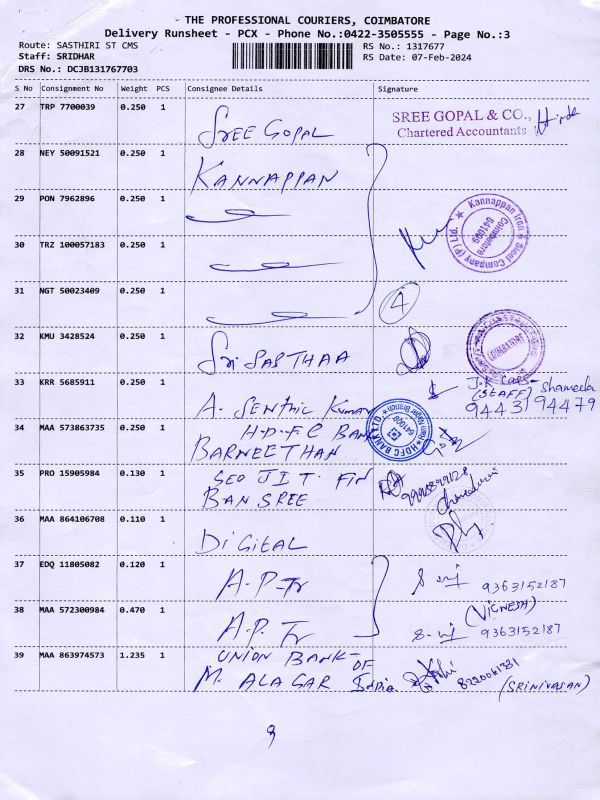 THE PROFESSIONAL COURIERS, COIMBATORE
Delivery Runsheet - PCX - Phone No.:0422-3505555 - Page No.:3
Route: SASTHIRI ST CMS
RS No.: 1317677
Staff: SRIDHAR
RS Date: 07-Feb-2024
DRS No.: DCJB131767703
S No Consignment No Weight PCS Consignee Details Signature
27 TRP 7700039 0.250 1 SREE GOPAL SREE GOPAL & CO.,
Chartered Accountants
28 NEY 50091521 0.250 1 KANNAPPAN
29 PON 7962896 0.250 1
Kannappan Iron & Steel Company (P) Ltd.
Coimbatore
641009
30 TRZ 100057183 0.250 1
31 NGT 50023409 0.250 1 4
32 KMU 3428524 0.250 1 Sri SASTHAA
COIMBATORE
33 KRR 5685911 0.250 1 A. SENTHIL Kumar
(STAFF) Shameela
94431 94479
34 MAA 573863735 0.250 1 H.D.F.C BANK
BARNEETHAN
HDFC BANK LTD.
35 PRO 15905984 0.130 1
BANSREE
36 MAA 864106708 0.110 1 DIGITAL
37 EDQ 11805082 0.120 1 A.P.Tr 9363152187
(VIGNESH)
38 MAA 572300984 0.470 1 A.P. Tr 9363152187
39 MAA 863974573 1.235 1 UNION BANK OF
M. ALAGAR India (SRINIVASAN)